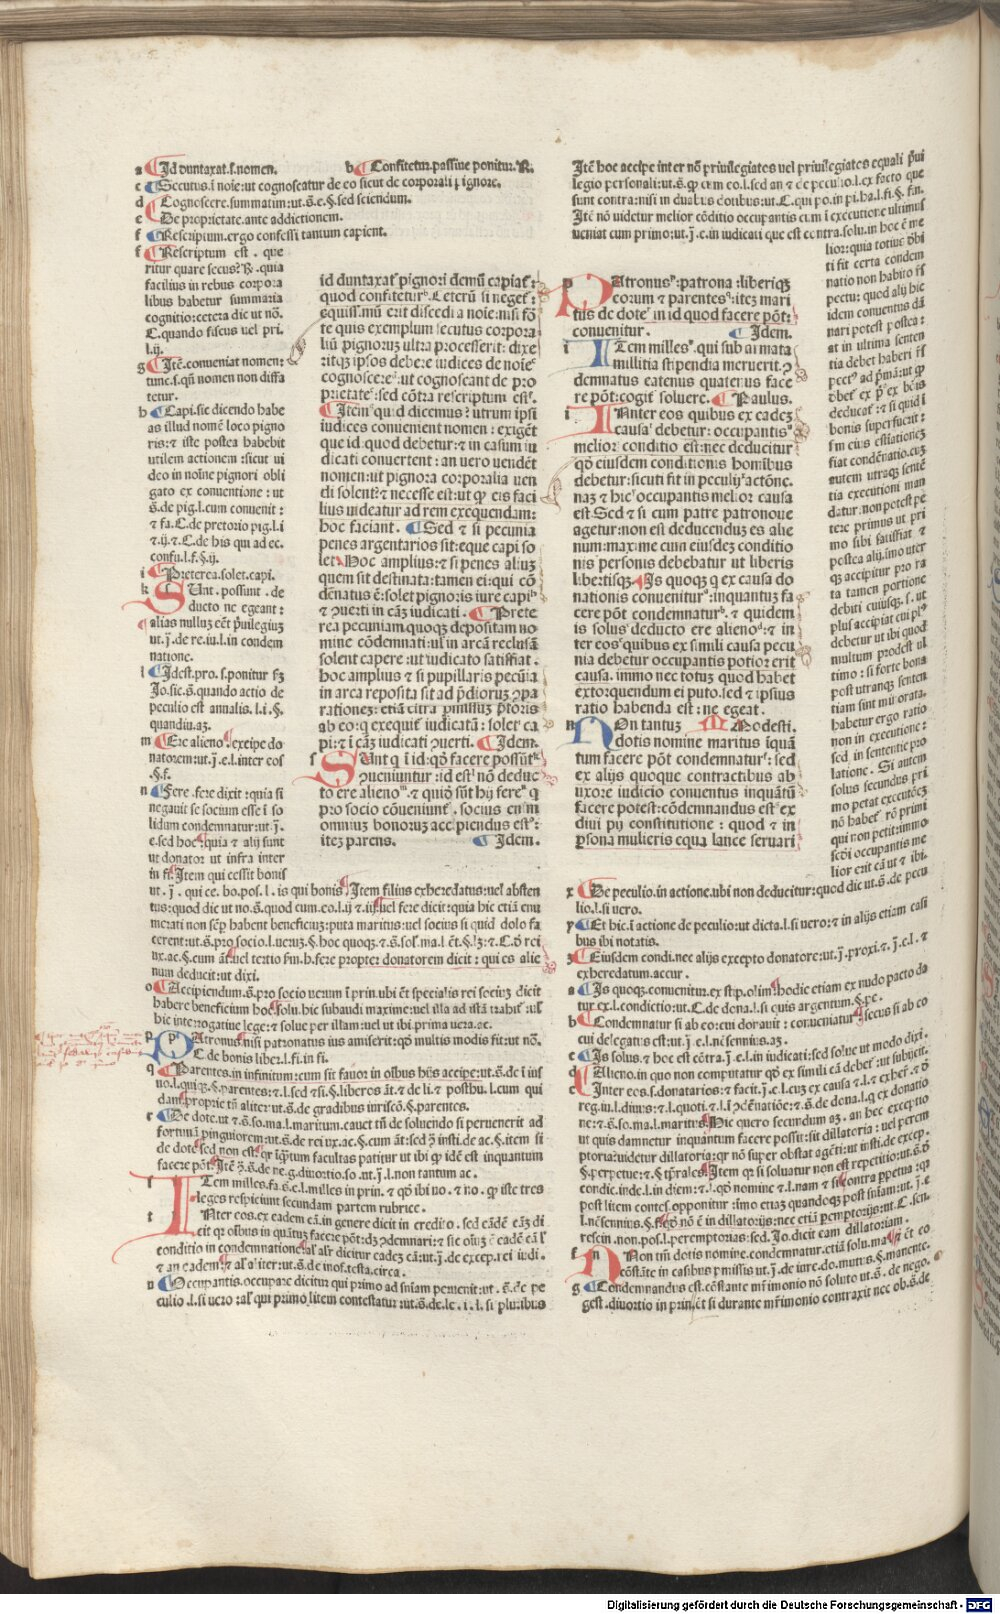 a Id duntaxat.s.nomen.
b Confitetur.passiue ponitur.R.
c Secutus.i noie:ut cognoscatur de eo sicut de corporali pignore.
d Cognoscere.summatim:ut.s.e.§.sed sciendum.
e De proprietate.ante addictionem.
f Rescriptum.ergo confessi tantum capient.
f Rescriptum est . que
ritur quare secus? R. quia
facilius in rebus corpora
libus habetur summaria
cognitio:cetera dic ut nō.
C.quando fiscus uel pri.
l.ij.
g Itē.conueniat nomen:
tunc.s.qn̄ nomen non diffa
tetur.
h Capi.sic dicendo habe
as illud nomē loco pigno
ris:⁊ iste postea habebit
utilem actionem :sicut ui
deo in noīne pignori obli
gato ex conuentione : ut
s.de pig.l.cum conuenit :
⁊ fa.C.de pretorio pig.l.i
⁊.ij.⁊.C.de his qui ad ec.
confu.l.f.§.ij.
i Preterea.solet.capi.
k Sunt.possunt . de
ducto ne egeant :
alias nullus eēt p̄uilegius
ut.j.de re.iu.l.in condem
natione.
l Idest.pro.s.ponitur sȝ
Jo.sic.s.quando actio de
peculio est annalis.l.i.§.
quandiu.aȝ.
m Ere alieno.excipe do
natorem:ut.j.e.l.inter eos
.§.f.
n Fere.fere dixit :quia si
negauit se socium esse i so
lidum condemnatur:ut.j.
e.sed hoc.quia ⁊ alij sunt
ut donator ut infra inter
in fi.Item qui cessit bonis
ut.j.qui ce.bo.pos.l.is qui bonis.Item filius exheredatus:uel absten
tus:quod dic ut no.s.quod cum.eo.l.ij ⁊ iij.uel fere dicit:quia hic etiā enu
merati non sēp habent beneficiuȝ:puta maritus:uel socius si quid dolo fa
cerent:ut.s.pro socio.l.ueruȝ.§.hoc quoqȝ.⁊.s.sol.ma.l ēt.§.lȝ:⁊.C.d̄ rei
ux.ac.§.cum āt.uel tertio fm.h.fere propter donatorem dicit : qui es alie
num deducit:ut dixi.
o Accipiendum.s.pro socio uerum i prin.ubi ēt specialis rei sociuȝ dicit
habere beneficium hoc.solu.hic subaudi maxime:uel illa ad istā trahit.uel
hic interrogatiue lege:⁊ solue per illam:uel ut ibi.prima uera.ac.
p Patronus.nisi patronatus ius amiserit:qd multis modis fit:ut nō.
C.de bonis liber.l.fi.in fi.
q Parentes.in infinitum:cum sit fauor in osbus hijs accipe:ut.s.de i ius
uo.l.quiqȝ.§.parentes:⁊.l.sed ⁊si.§.liberos āt.⁊ de li.⁊ posthu.l.cum qui
dam.proprie tn̄ aliter:ut.s.de gradibus inriscō.§.parentes.
r De dote.ut ⁊.s.so.ma.l.maritum.cauet tn̄ de soluendo si peruenerit ad
fortunā pinguiorem:ut.s.de rei ux.ac.§.cum āt:sed ȝ insti.de ac.§.item si
de dote.sed non est.
facere pōt.
s Item milles.fa.s.e.l.milles in prin.⁊ qd ibi no.⁊ no. qp iste tres
leges respiciunt secundam partem rubrice.
t Inter eos.ex eadem cā.in genere dicit in credito . sed eādē cāȝ di
cit
conditio in condemnatione
⁊ an eadem.⁊ al aliter:ut.s.de inof.testa.circa.
u Occupantis.occupare dicitur qui primo ad sniam peruenit:ut.s.de pe
culio.l.si uero :al' qui primo litem contestatur:ut.s.de.le.i.l.si pluribus
id duntaxat pignori demū capiat:
quod confitetur.Ceterū si neget:
equissimū erit discedi a noie:nisi fo
te quis exemplum secutus corpora
liū pignoruȝ ultra processerit: dixe
ritqȝ ipsos debere iudices de noie
cognoscere:ut cognoscant de pro
prietate:sed cōtra rescriptum est.
Item quid dicemus? utrum ipsi
iudices conuenient nomen : exigēt
que id quod debetur:⁊ in casum iu
dicati conuertent : an uero uendēt
nomen:ut pignora corporalia uen
di solent? ⁊ necesse est:ut qp eis faci
lius uideatur ad rem exequendam:
hoc faciant. Sed ⁊ si pecunia
penes argentarios sit:eque capi so
let.Hoc amplius:⁊ si penes aliuȝ
quem sit destinata:tamen ei:qui cō
dēnatus ē:solet pignoris iure capi
⁊ ꝯuerti in cāȝ iudicati. Prete
rea pecuniam quoqȝ depositam no
mine cōdemnati:ul in arcā reclusā
solent capere :ut iudicato satisfiat.
hoc amplius ⁊ si pupillaris pecūia
in arca reposita sit ad p̄dioruȝ ꝯpa
rationeȝ: etiā citra pmissuȝ p̄toris
ab eo:q exequit iudicatā: solet ca
pi:⁊ i cāȝ iudicati ꝯuerti. Idem.
Sunt q i id:qd facere possūt
ꝯueniuntur :id est nō deduc
to ere alieno ⁊ quiqȝ sūt hij fere q
pro socio cōueniunt . socius enim
omniuȝ bonoruȝ accipiendus est:
iteȝ parens. Idem.
Patronus : patrona :liberiqȝ
eorum ⁊ parentes :iteȝ mari
tus de dote in id quod facere pōt:
conuenitur. Idem.
Item milles.qui sub armata
millitia stipendia meruerit.ȝ
demnatus eatenus quatenus face
re pōt:cogit soluere. Paulus.
Inter eos quibus ex eadeȝ
causa debetur: occupantis
melior conditio est:nec deducitur
qd eiusdem conditionis homībus
debetur:sicuti fit in peculij actōne.
naȝ ⁊ hic occupantis melior causa
est.Sed ⁊ si cum patre patronoue
agetur:non est deducenduȝ es alie
num:maxime cum eiusdeȝ conditio
nis personis debebatur ut liberis
libertisqȝ.Is quoqȝ q ex causa do
nationis conuenitur:inquantuȝ fa
cere pōt condemnatur. ⁊ quidem
is solus deducto ere alieno:⁊ in
ter eos quibus ex simili causa pecu
nia debetur occupantis potior erit
causa. immo nec totuȝ quod habet
extorquendum ei puto.sed ⁊ ipsius
ratio habenda est:ne egeat.
Non tantuȝ Modesti.
dotis nomine maritus iquā
tum facere pōt condemnatur: sed
ex alijs quoque contractibus ab
uxore iudicio conuentus inquātū
facere potest:cōdemnandus est ex
diui pij constitutione : quod ⁊ in
psona mulieris equa lance seruari
Itē hoc accipe inter nō priuilegiatos uel priuilegiatos equali p̄ui
legio personali:ut.s.qp cum eo.l.sed an ⁊ de peculio.l.ex facto que
sunt contra:nisi in duabus dotibus:ut.C.qui po.in pi.ha.l.fi.§.f.n.
Itē nō uidetur melior cōditio occupantis cum i executione ultimus
ueniat cum primo:ut.j.e.in iudicati que est contra.solu.in hoc ē me
lior:quia totiue obi
ti fit certa condem
natio non habito rs
pectu: quod alij hic
idem conuentus dā
nari potest postea :
at in ultima senten
tia debet haberi rs
pect ad pmā:ut qp
dbet ex p ex bōis
deducat :⁊ si quid i
bonis superfuerit :
fm eius estiationeȝ
fiat condēnatio.cuȝ
autem utraqȝ sentē
tia executioni man
datur.non potest pe
tere primus ut pri
mo sibi satisfiat ⁊
postea alij.imo uter
qȝ accipitur pro ra
ta tamen portione
debiti cuiusqȝ.s.ut
plus accipiat cui pl
debetur ut ibi quod
multum prodest ul
timo : si forte bona
post utranqȝ senten
tiam sint mīorata.
habetur ergo ratio
non in executione :
sed in sententie pro
latione. Si autem
solus secundus pri
mo petat executōeȝ
nō habet rō primi
qui non petit:immo
scdi occupantis me
lior erit cā ut ⁊ ibi.
x De peculio.in actione.ubi non deducitur:quod dic ut.s.de pecu
lio.l.si uero.
y Et hic.i actione de peculio:ut dicta.l.si uero:⁊ in alijs etiam casi
bus ibi notatis.
z Eiusdem condi.nec alijs excepto donatore:ut.j.proxi.⁊.j.e.l.⁊
exheredatum.accur.
a Is quoqȝ.conuenitur.ex stip.olim.hodie etiam ex nudo pacto da
tur ex.l.condictio:ut.C.de dona.l.si quis argentum.§.pe.
b Condemnatur si ab eo:cui donauit : conueniatur.secus si ab eo
cui delegatus est:ut.j.e.l.nēsennius.aȝ.
c Is solus.⁊ hoc est cōtra.j.e.l.in iudicati:sed solue ut modo dixi.
d Alieno.in quo non computatur qd ex simili cā debet:ut subijcit.
e Inter eos.s.donatarios:⁊ facit.j.e.l.cuȝ ex causa ⁊.l.⁊ exher.⁊ d
reg.iu.l.diuus:⁊.l.quoti.⁊.l.i ꝯdēnatiōe:⁊.s.de dona.l.q ex donatio
ne:⁊.s.so.ma.l.maritus.Hic quero secundum aȝ. an hec exceptio
ut quis damnetur inquantum facere possit:sit dillatoria : uel perem
ptoria:uidetur dillatoria:qr nō super obstat agēti:ut insti.de excep.
§.perpetue:⁊.§ tpales.Item qr si soluatur non est repetitio:ut.s.d
condic.inde.l.in diem:⁊.l.qd nomine ⁊.l.nam ⁊ si.contra ppetua :qr
post litem contes.opponitur :imo etiaȝ quandoqȝ post sniam:ut.j.e
l.nēsennius.§.f.
rescin.non.pos.l.peremptorias:sed.Jo.dicit eam dillatoriam.
f Non tm̄ dotis nomine.condemnatur.etiā solu.ma.
cōstāte in casibus pmissis ut.j.de iure.do.mutus.§.manente.
g Condemnandus est.cōstante mrimonio nō soluto ut.s. de nego.
gest.diuortio in prin.et si durante mrimonio contraxit nec ob.s.de
Digitalisierung gefördert durch die Deutsche Forschungsgemeinschaft - DFG